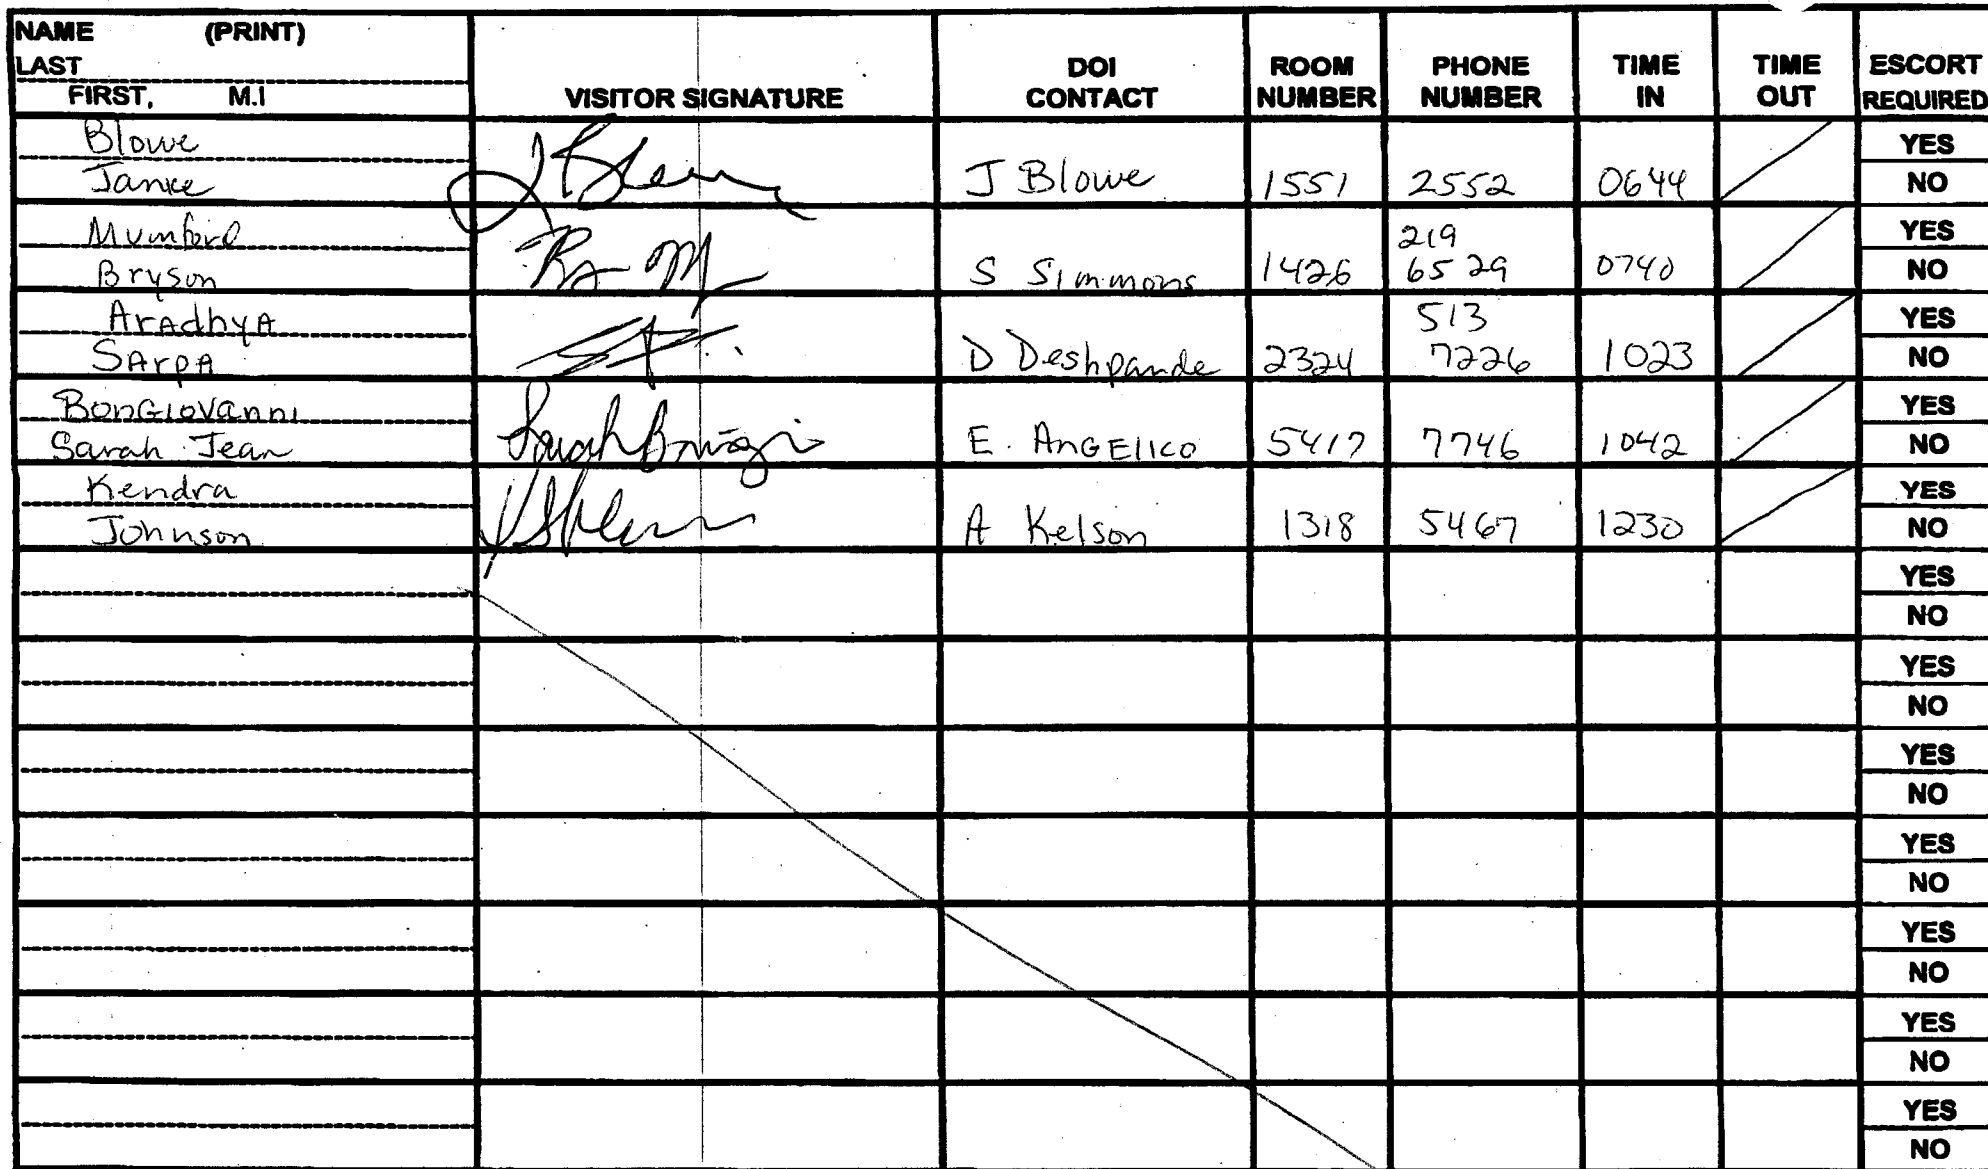 NAME (PRINT)
LAST
FIRST, M.I
VISITOR SIGNATURE
DOI
CONTACT
ROOM
NUMBER
PHONE
NUMBER
TIME
IN
TIME
OUT
ESCORT
REQUIRED
Blowe
Janice
J Blowe
1551
2552
0644
YES
NO
Mumford
Bryson
S Simmons
1426
219
6529
0740
YES
NO
AradhyA
SArpA
D Deshpande
2324
513
7226
1023
YES
NO
BonGiovanni
Sarah Jean
E. AnGElico
5417
7746
1042
YES
NO
Kendra
Johnson
A Kelson
1318
5467
1230
YES
NO
YES
NO
YES
NO
YES
NO
YES
NO
YES
NO
YES
NO
YES
NO